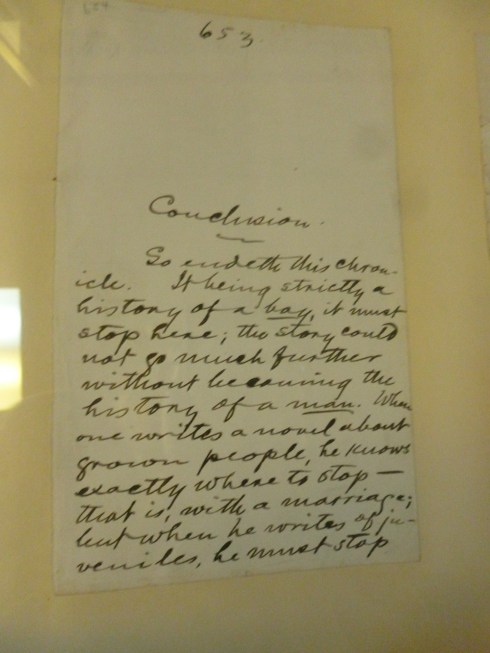 653.
Conclusion.
So endeth this chron-
icle. It being strictly a
history of a boy, it must
stop here; the story could
not go much further
without becoming the
history of a man. When
one writes a novel about
grown people, he knows
exactly where to stop —
that is, with a marriage;
but when he writes of ju-
veniles, he must stop